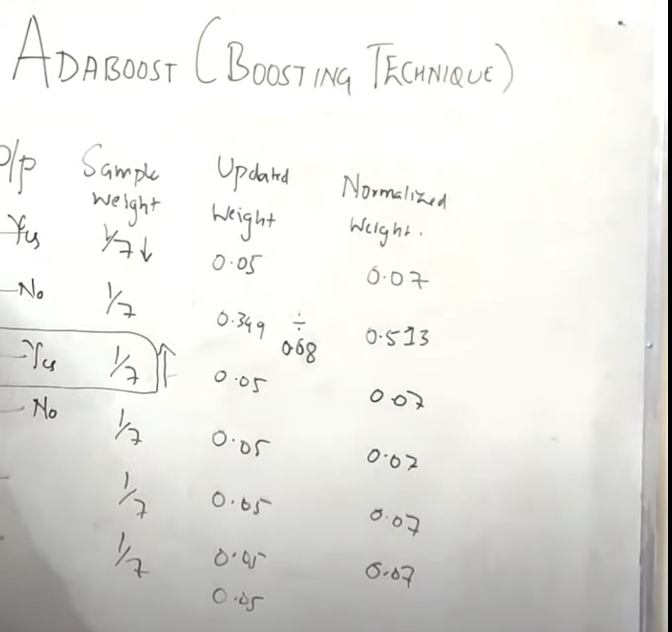 ADABOOST (BOOSTING TECHNIQUE)
O/p Sample Weight Updated Weight Normalized Weight.
Yes 1/7 ↓ 0.05 0.07
No 1/7 0.349 ÷ 0.68 0.513
Yes 1/7 ↑ 0.05 0.07
No 1/7 0.05 0.07
1/7 0.05 0.07
1/7 0.05 0.07
0.05